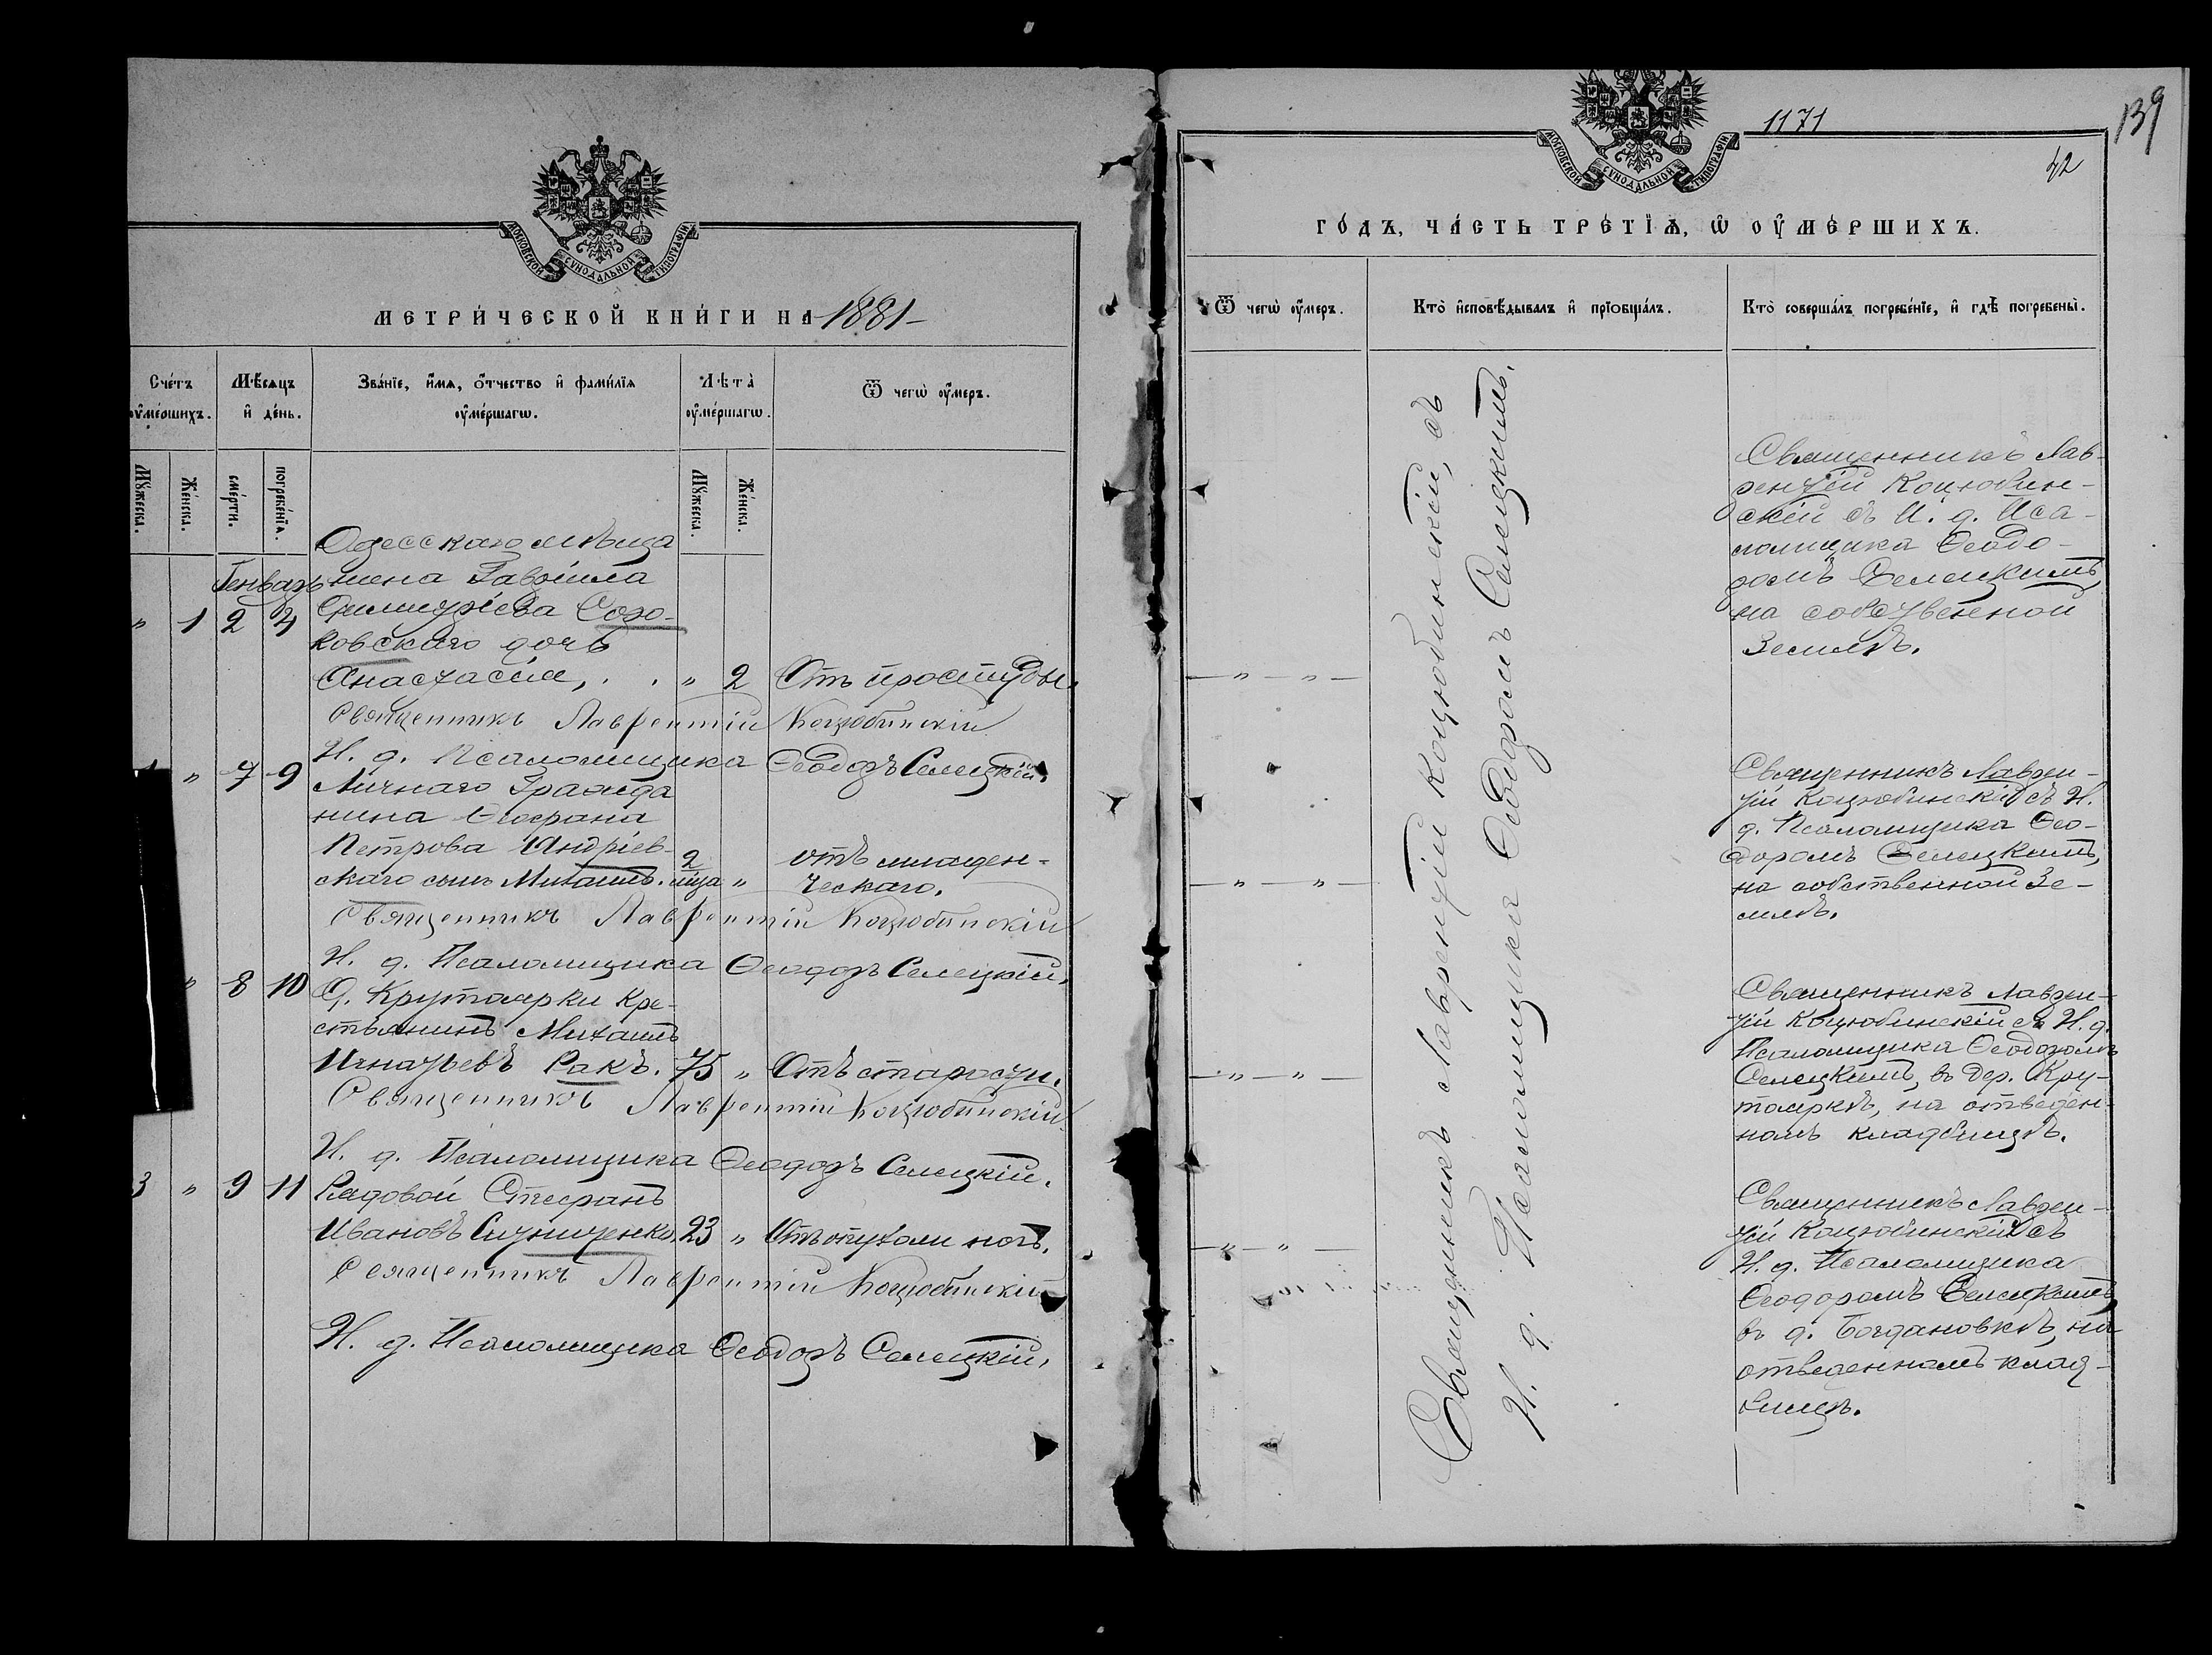 МОСКОВСКОЙ СУНОДАЛЬНОЙ ТИПОГРАФІИ
МЕТРИ́ЧЕСКОЙ КНИ́ГИ НА 1881
Сче́тъ ᲂу҆ме́ршихъ.
Мѣ́сяцъ и҆ де́нь.
Зва́нїе, и҆́мѧ, ѻ҆́тчество и҆ фами́лїѧ ᲂу҆ме́ршагѡ.
Лѣта̀ ᲂу҆ме́ршагѡ.
Ѿ чегѡ̀ ᲂу҆́меръ.
Мꙋ́жеска.
Же́нска.
сме́рти.
погребе́нїѧ.
Мꙋ́жеска.
Же́нска.
Одесскаго мѣща
Генварь нина Гавріила
" 1 2 4 Димитріева Соро-
ковскаго дочь
Анастасія, . . " 2 Отъ простуды.
Священникъ Лаврентій Коцюбинскій
И. д. Псаломщика Ѳеодоръ Селецкій.
" 7 9 Личнаго Гражда
нина Ѳеофана
Петрова Андріев-
скаго сынъ Михаилъ. 2 мца " отъ младен-
ческаго.
Священникъ Лаврентій Коцюбинскій
И. д. Псаломщика Ѳеодоръ Селецкій.
" 8 10 Д. Крутоярки Кре-
стьянинъ Михаилъ
Игнатьевъ Ракъ. 75 " Отъ старости.
Священникъ Лаврентій Коцюбинскій
И. д. Псаломщика Ѳеодоръ Селецкій.
3 " 9 11 Рядовой Стефанъ
Ивановъ 23 " Отъ опухоли ногъ.
Священникъ Лаврентій Коцюбинскій
И. д. Псаломщика Ѳеодоръ Селецкій.
1171
139
42
МОСКОВСКОЙ СУНОДАЛЬНОЙ ТИПОГРАФІИ
ГО́ДЪ, ЧА́СТЬ ТРЕ́ТЇѦ, Ѡ҆ ОУ҆МЕ́РШИХЪ.
Ѿ чегѡ̀ ᲂу҆́меръ.
Кто̀ и҆сповѣ́дывалъ и҆ прїобща́лъ.
Кто̀ соверша́лъ погребе́нїе, и҆ гдѣ̀ погребены̀.
— " — " —
— " — " —
— " — " —
— " — " —
Священникъ Лаврентій Коцюбинскій, съ
И. д. Псаломщика Ѳеодоромъ Селецкимъ.
Священникъ Лав-
рентій Коцюбин-
скій съ И. д. Пса-
ломщика Ѳеодо-
ромъ Селецкимъ,
на собственной
Землѣ.
Священникъ Лаврен-
тій Коцюбинскій съ И.
д. Псаломщика Ѳео-
доромъ Селецкимъ,
на собственной Зе-
млѣ.
Священникъ Лаврен-
тій Коцюбинскій съ И. д.
Псаломщика Ѳеодоромъ
Селецкимъ, въ дер. Кру-
тояркѣ, на отведен-
номъ кладбищѣ.
Священникъ Лаврен-
тій Коцюбинскій съ
И. д. Псаломщика
Ѳеодоромъ Селецкимъ,
въ д. Богдановкѣ, на
отведенномъ клад-
бищѣ.